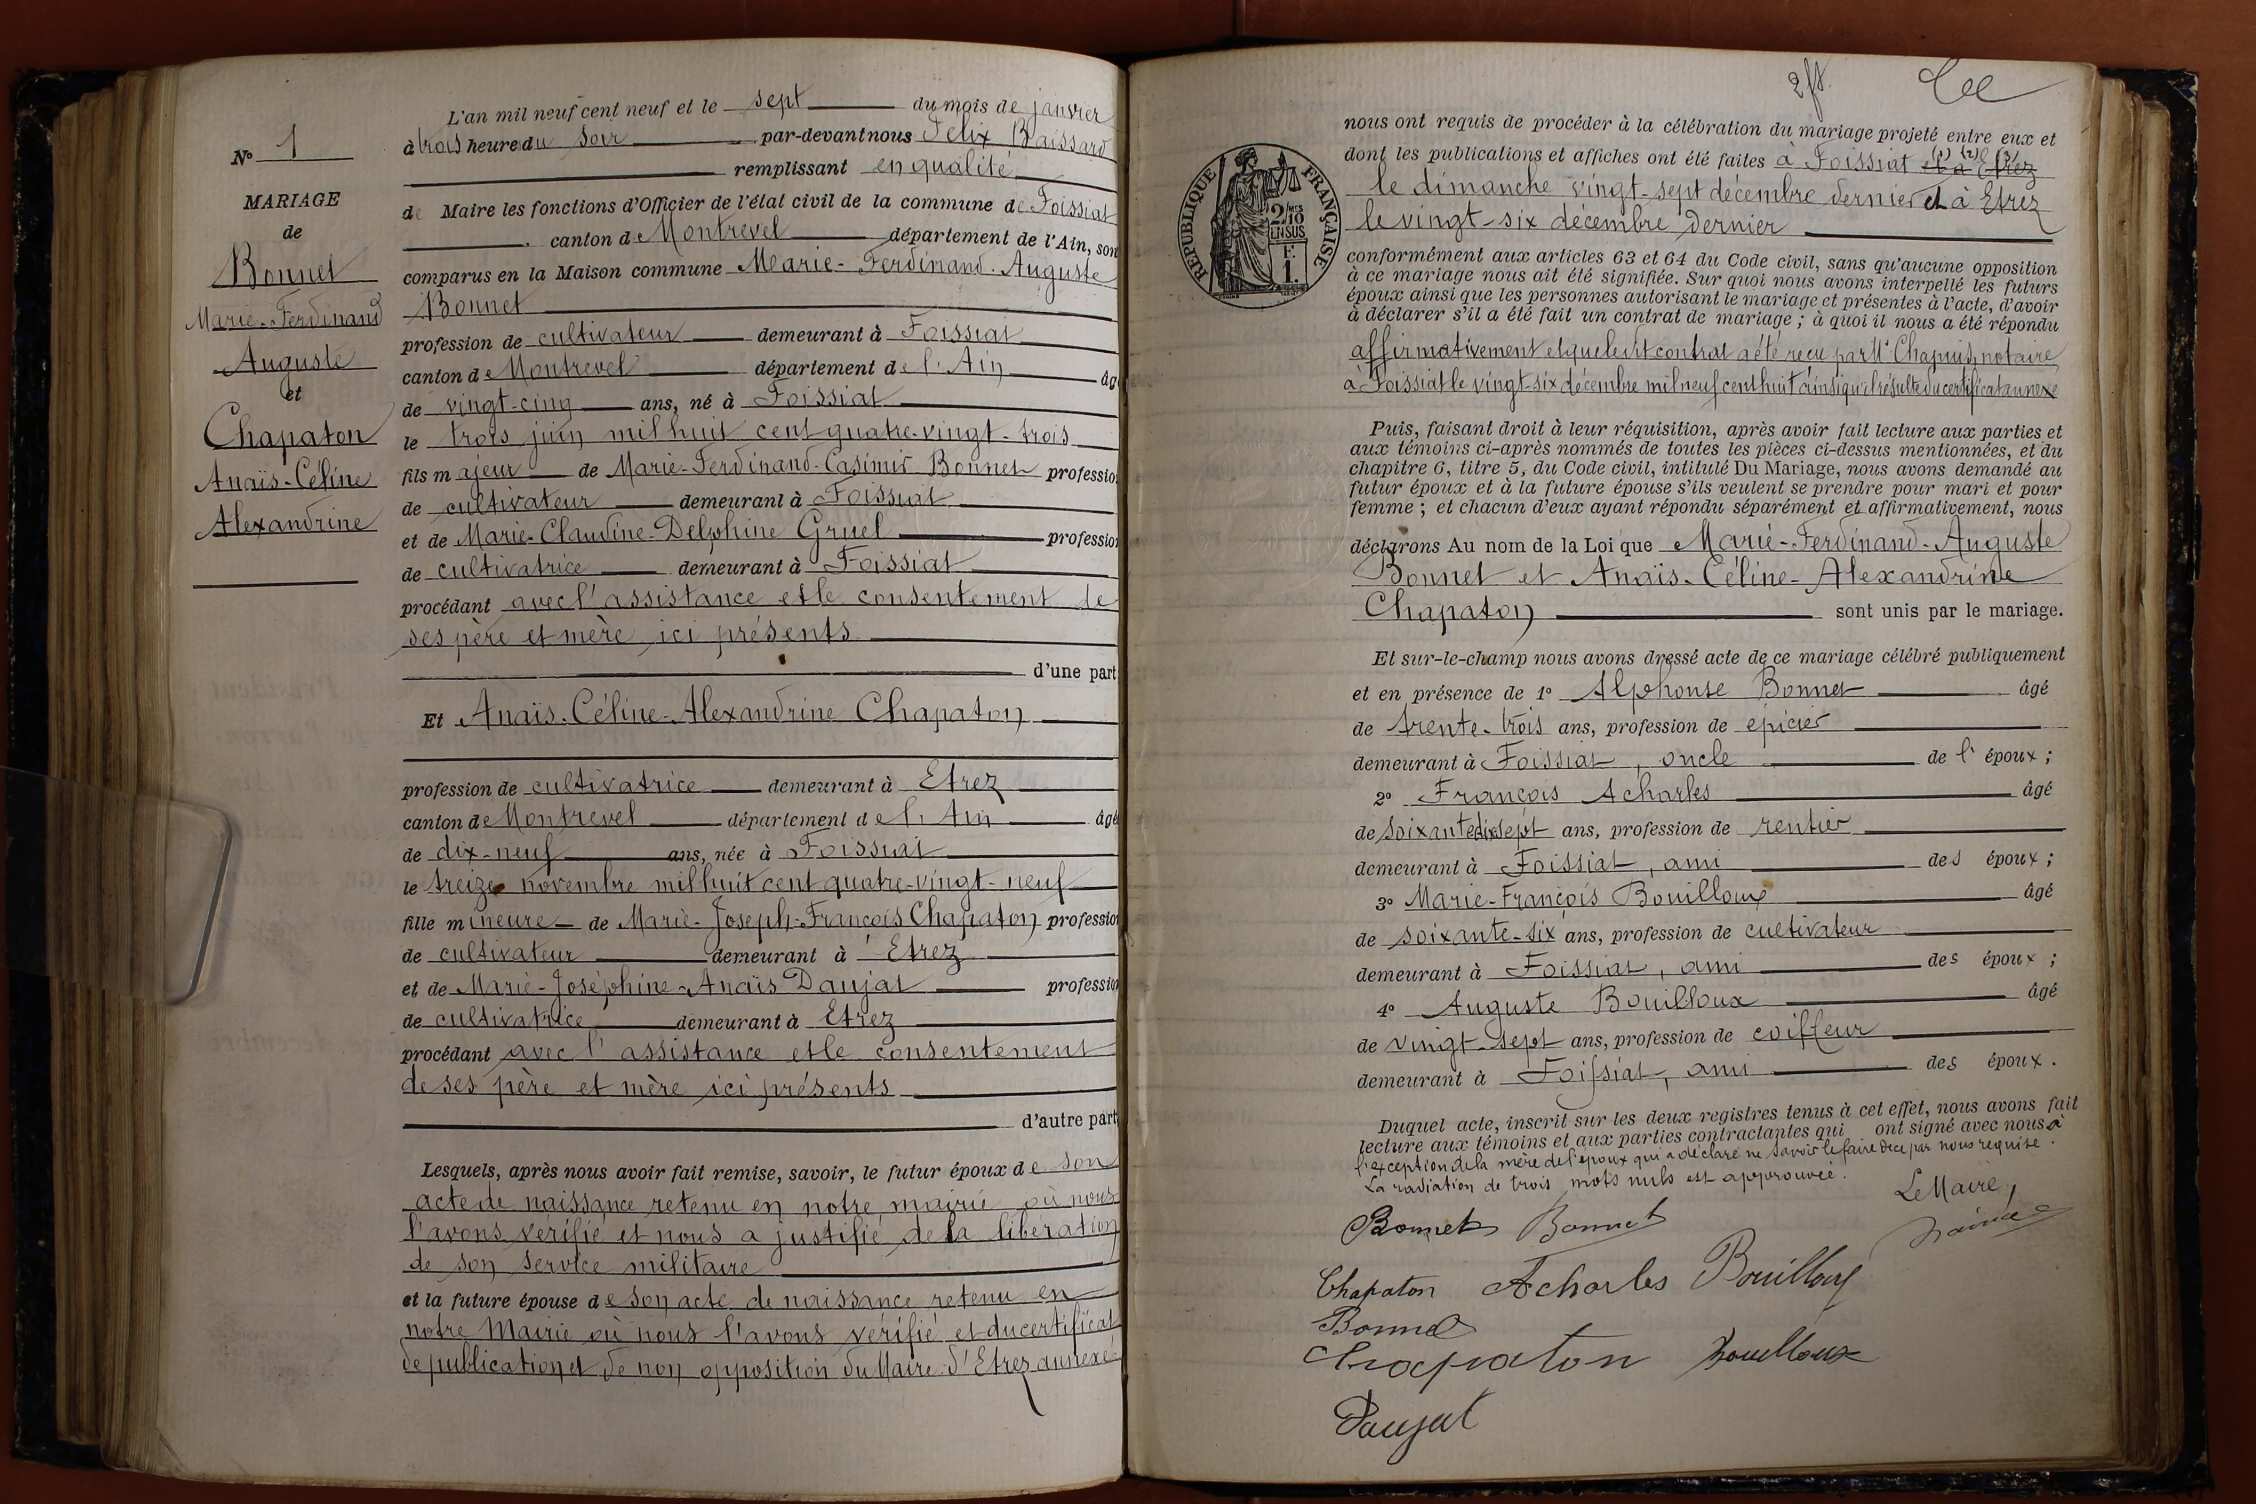 N° 1
MARIAGE
de
Bonnet
Marie-Ferdinand
Auguste
et
Chapaton
Anaïs-Céline
Alexandrine
L'an mil neuf cent neuf et le sept du mois de janvier
à trois heure du soir par-devant nous Félix Baissard
remplissant en qualité
de Maire les fonctions d'Officier de l'état civil de la commune de Foissiat
canton de Montrevel département de l'Ain, son
comparus en la Maison commune Marie-Ferdinand-Auguste
Bonnet
profession de cultivateur demeurant à Foissiat
canton de Montrevel département de l'Ain âg
de vingt-cinq ans, né à Foissiat
le trois juin mil huit cent quatre-vingt-trois
fils majeur de Marie-Ferdinand-Casimir Bonnet professio
de cultivateur demeurant à Foissiat
et de Marie-Claudine-Delphine Gruel profession
de cultivatrice demeurant à Foissiat
procédant avec l'assistance et le consentement de
ses père et mère ici présents
d'une part
Et Anaïs-Céline-Alexandrine Chapaton
profession de cultivatrice demeurant à Etrez
canton de Montrevel département de l'Ain âgé
de dix-neuf ans, née à Foissiat
le treize novembre mil huit cent quatre-vingt-neuf
fille mineure de Marie-Joseph-François Chapaton profession
de cultivateur demeurant à Etrez
et de Marie-Joséphine-Anaïs Daujat profession
de cultivatrice demeurant à Etrez
procédant avec l'assistance et le consentement
de ses père et mère ici présents
d'autre part
Lesquels, après nous avoir fait remise, savoir, le futur époux de son
acte de naissance retenu en notre mairie où nous
l'avons vérifié et nous a justifié de la libération
de son service militaire
et la future épouse de son acte de naissance retenu en
notre Mairie où nous l'avons vérifié et du certificat
de publication et de non opposition du Maire d'Etrez annexé
2 f
nous ont requis de procéder à la célébration du mariage projeté entre eux et
dont les publications et affiches ont été faites à Foissiat et à Etrez
(1) (2) (3)
le dimanche vingt-sept décembre dernier et à Etrez
le vingt-six décembre dernier
RÉPUBLIQUE FRANÇAISE
2/10 MES
EN SUS
F.
1.
conformément aux articles 63 et 64 du Code civil, sans qu'aucune opposition
à ce mariage nous ait été signifiée. Sur quoi nous avons interpellé les futurs
époux ainsi que les personnes autorisant le mariage et présentes à l'acte, d'avoir
à déclarer s'il a été fait un contrat de mariage ; à quoi il nous a été répondu
affirmativement et que ledit contrat a été reçu par Me Chapuis, notaire
à Foissiat le vingt-six décembre mil neuf cent huit ainsi qu'il résulte du certificat annexé
Puis, faisant droit à leur réquisition, après avoir fait lecture aux parties et
aux témoins ci-après nommés de toutes les pièces ci-dessus mentionnées, et du
chapitre 6, titre 5, du Code civil, intitulé Du Mariage, nous avons demandé au
futur époux et à la future épouse s'ils veulent se prendre pour mari et pour
femme ; et chacun d'eux ayant répondu séparément et affirmativement, nous
déclarons Au nom de la Loi que Marie-Ferdinand-Auguste
Bonnet et Anaïs-Céline-Alexandrine
Chapaton sont unis par le mariage.
Et sur-le-champ nous avons dressé acte de ce mariage célébré publiquement
et en présence de 1° Alphonse Bonnet âgé
de trente-trois ans, profession de épicier
demeurant à Foissiat, oncle de l'époux ;
2° François Acharles âgé
de soixante dix sept ans, profession de rentier
demeurant à Foissiat, ami des époux ;
3° Marie-François Bouilloux âgé
de soixante-six ans, profession de cultivateur
demeurant à Foissiat, ami des époux ;
4° Auguste Bouilloux âgé
de vingt-sept ans, profession de coiffeur
demeurant à Foissiat, ami des époux.
Duquel acte, inscrit sur les deux registres tenus à cet effet, nous avons fait
lecture aux témoins et aux parties contractantes qui ont signé avec nous à
l'exception de la mère de l'époux qui a déclaré ne savoir le faire de ce par nous requise.
La radiation de trois mots nuls est approuvée.
Le Maire,
Bonnet Bonnet
Chapaton Acharles Bouilloux
Bonnet
Chapaton Bouilloux
Daujat